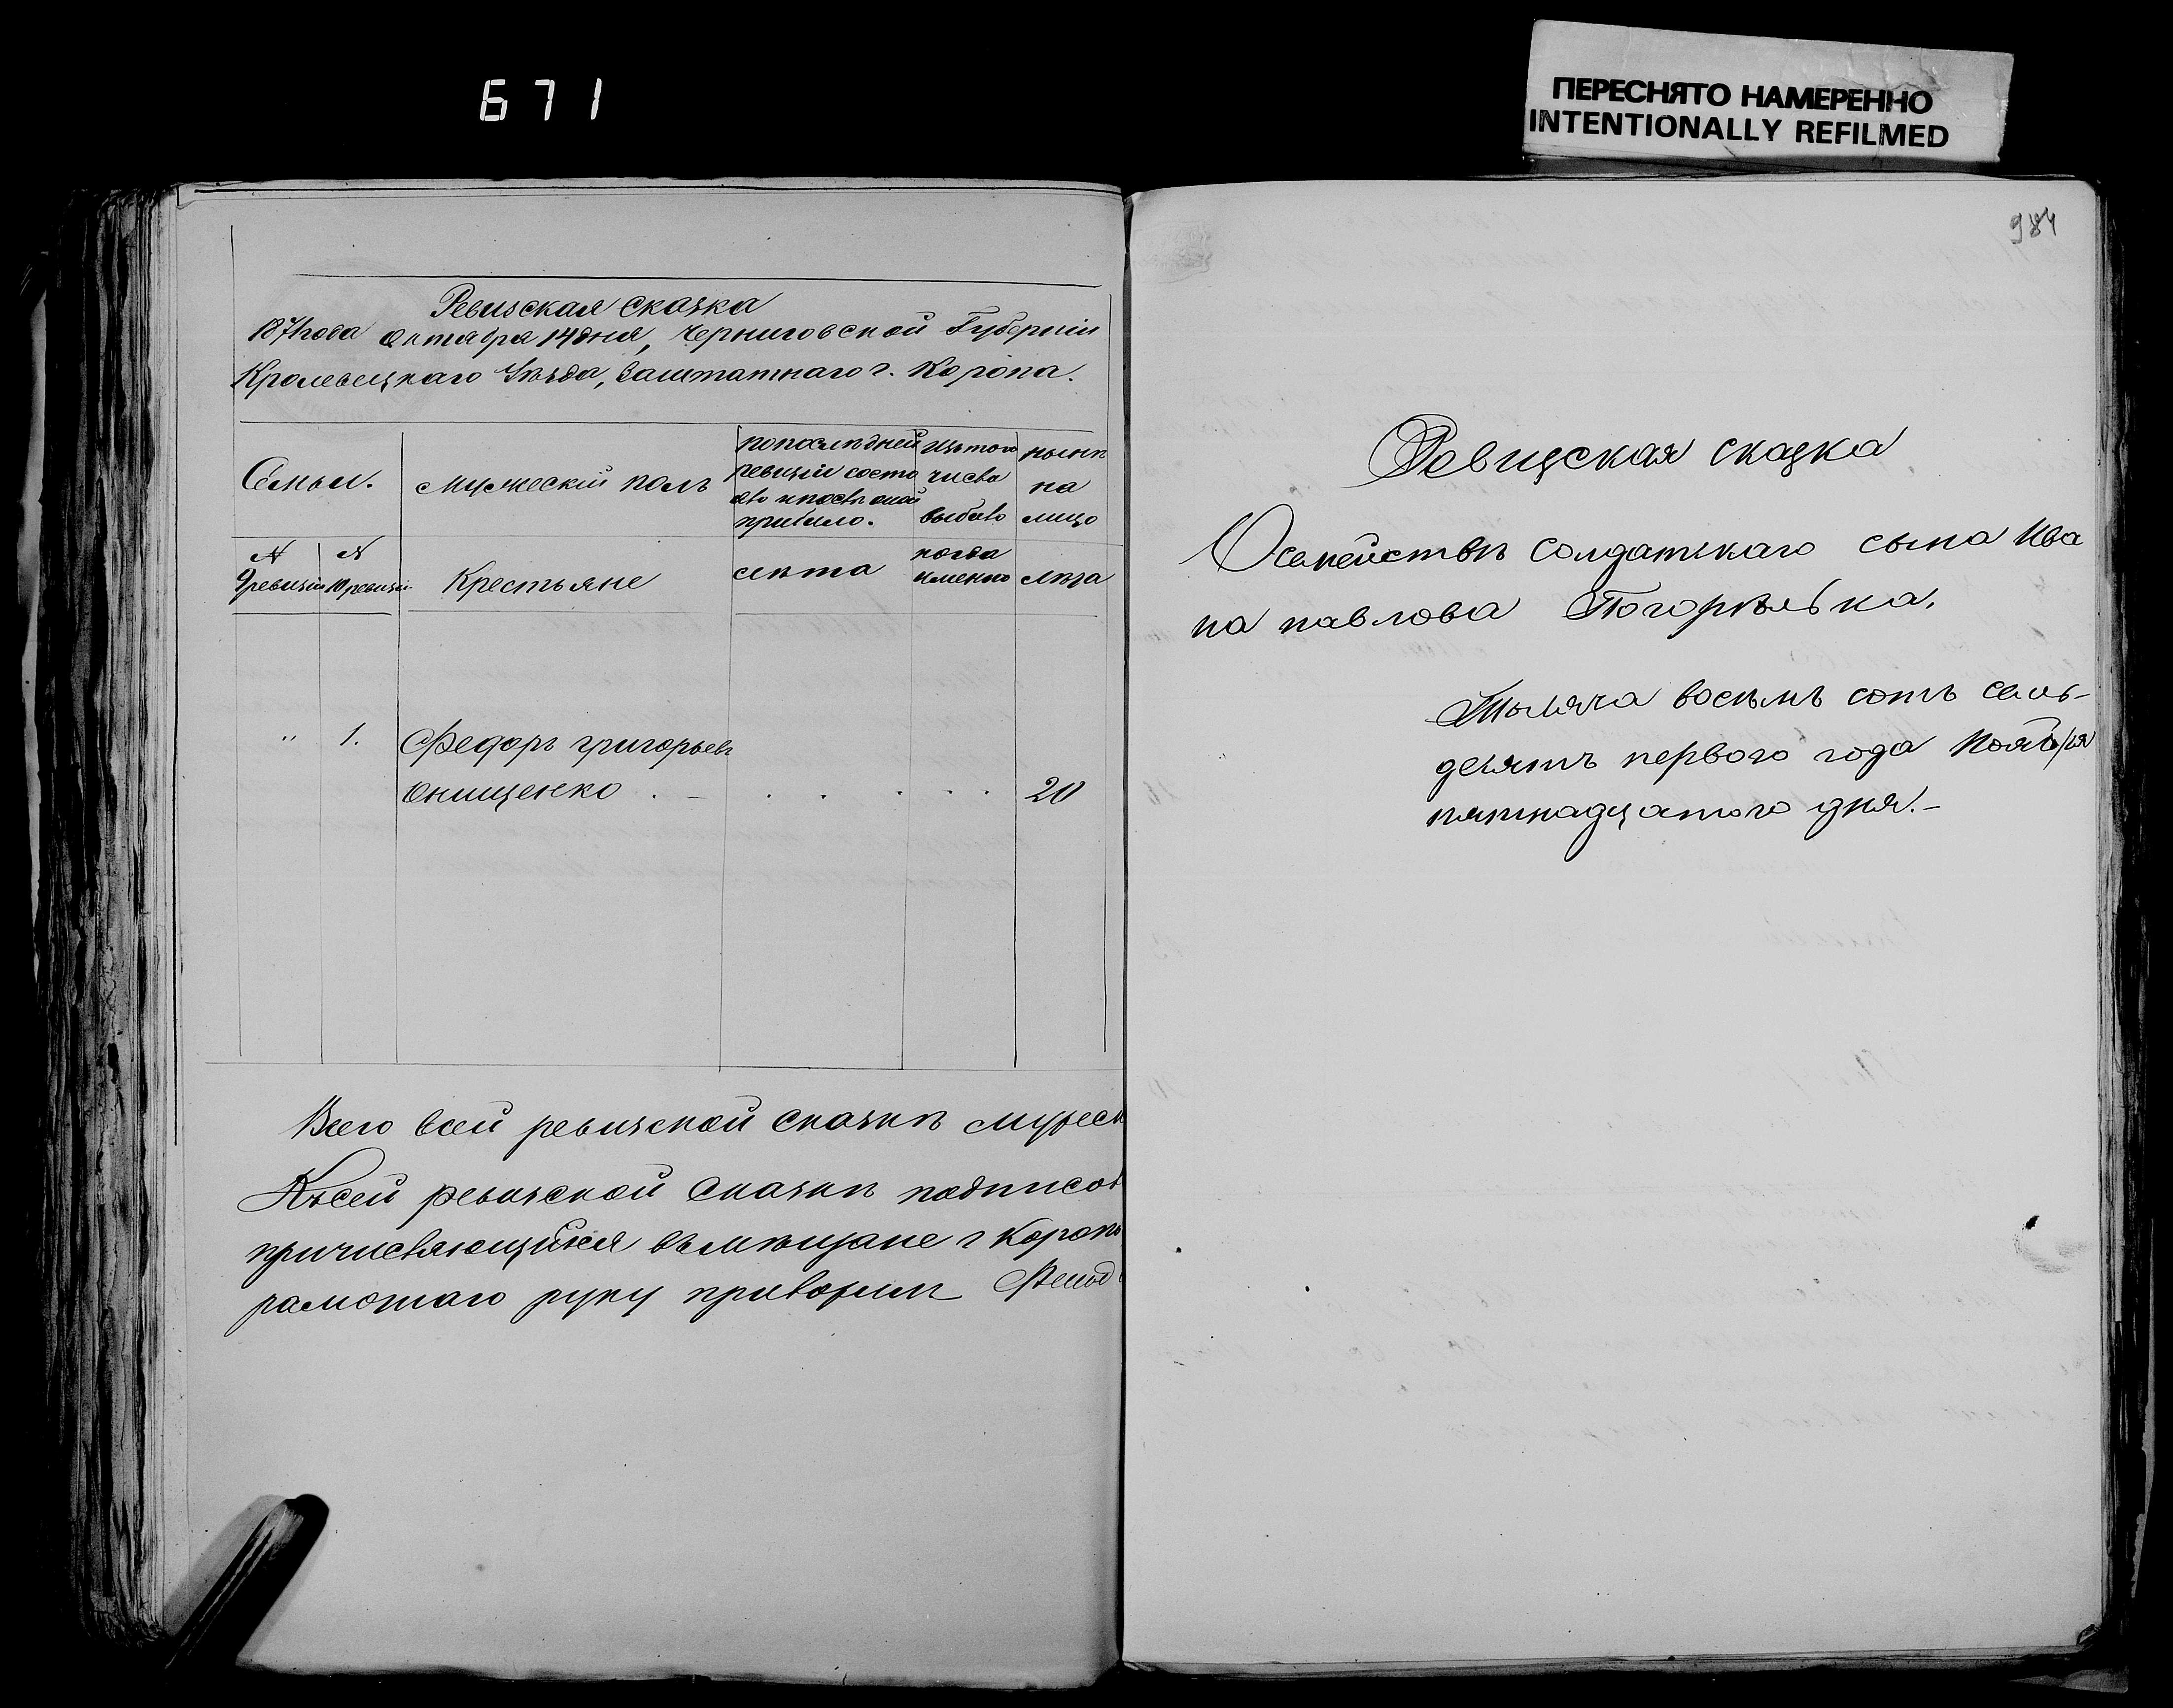 671
ПЕРЕСНЯТО НАМЕРЕННО
INTENTIONALLY REFILMED
Ревизская сказка
1871 года Октября 14 дня, Черниговской Губерніи
Кролевецкаго Уѣзда, Заштатнаго г. Коропа.
Семьи. Мужескій полъ
по послѣдней ревизіи состояло и послѣ оной прибыло.
Изъ того числа выбыло
нынѣ на лицо
№ 9 ревизіи № 10 ревизіи Крестьяне лѣта когда именно лѣта
" 1. Федоръ Григорьевъ
Онищенко . – . . . . . 20
Всего въ сей ревизской сказкѣ мужеск
Къ сей ревизской сказкѣ подписов
причисляющійся въ мѣщане г Короп
рамотнаго руку приложил
984
Ревизская сказка
О семействѣ солдатскаго сына Ива
на Павлова Погорѣлька.
Тысяча восемь сотъ семь-
десятъ первого года Ноября
пятнадцатого дня.–